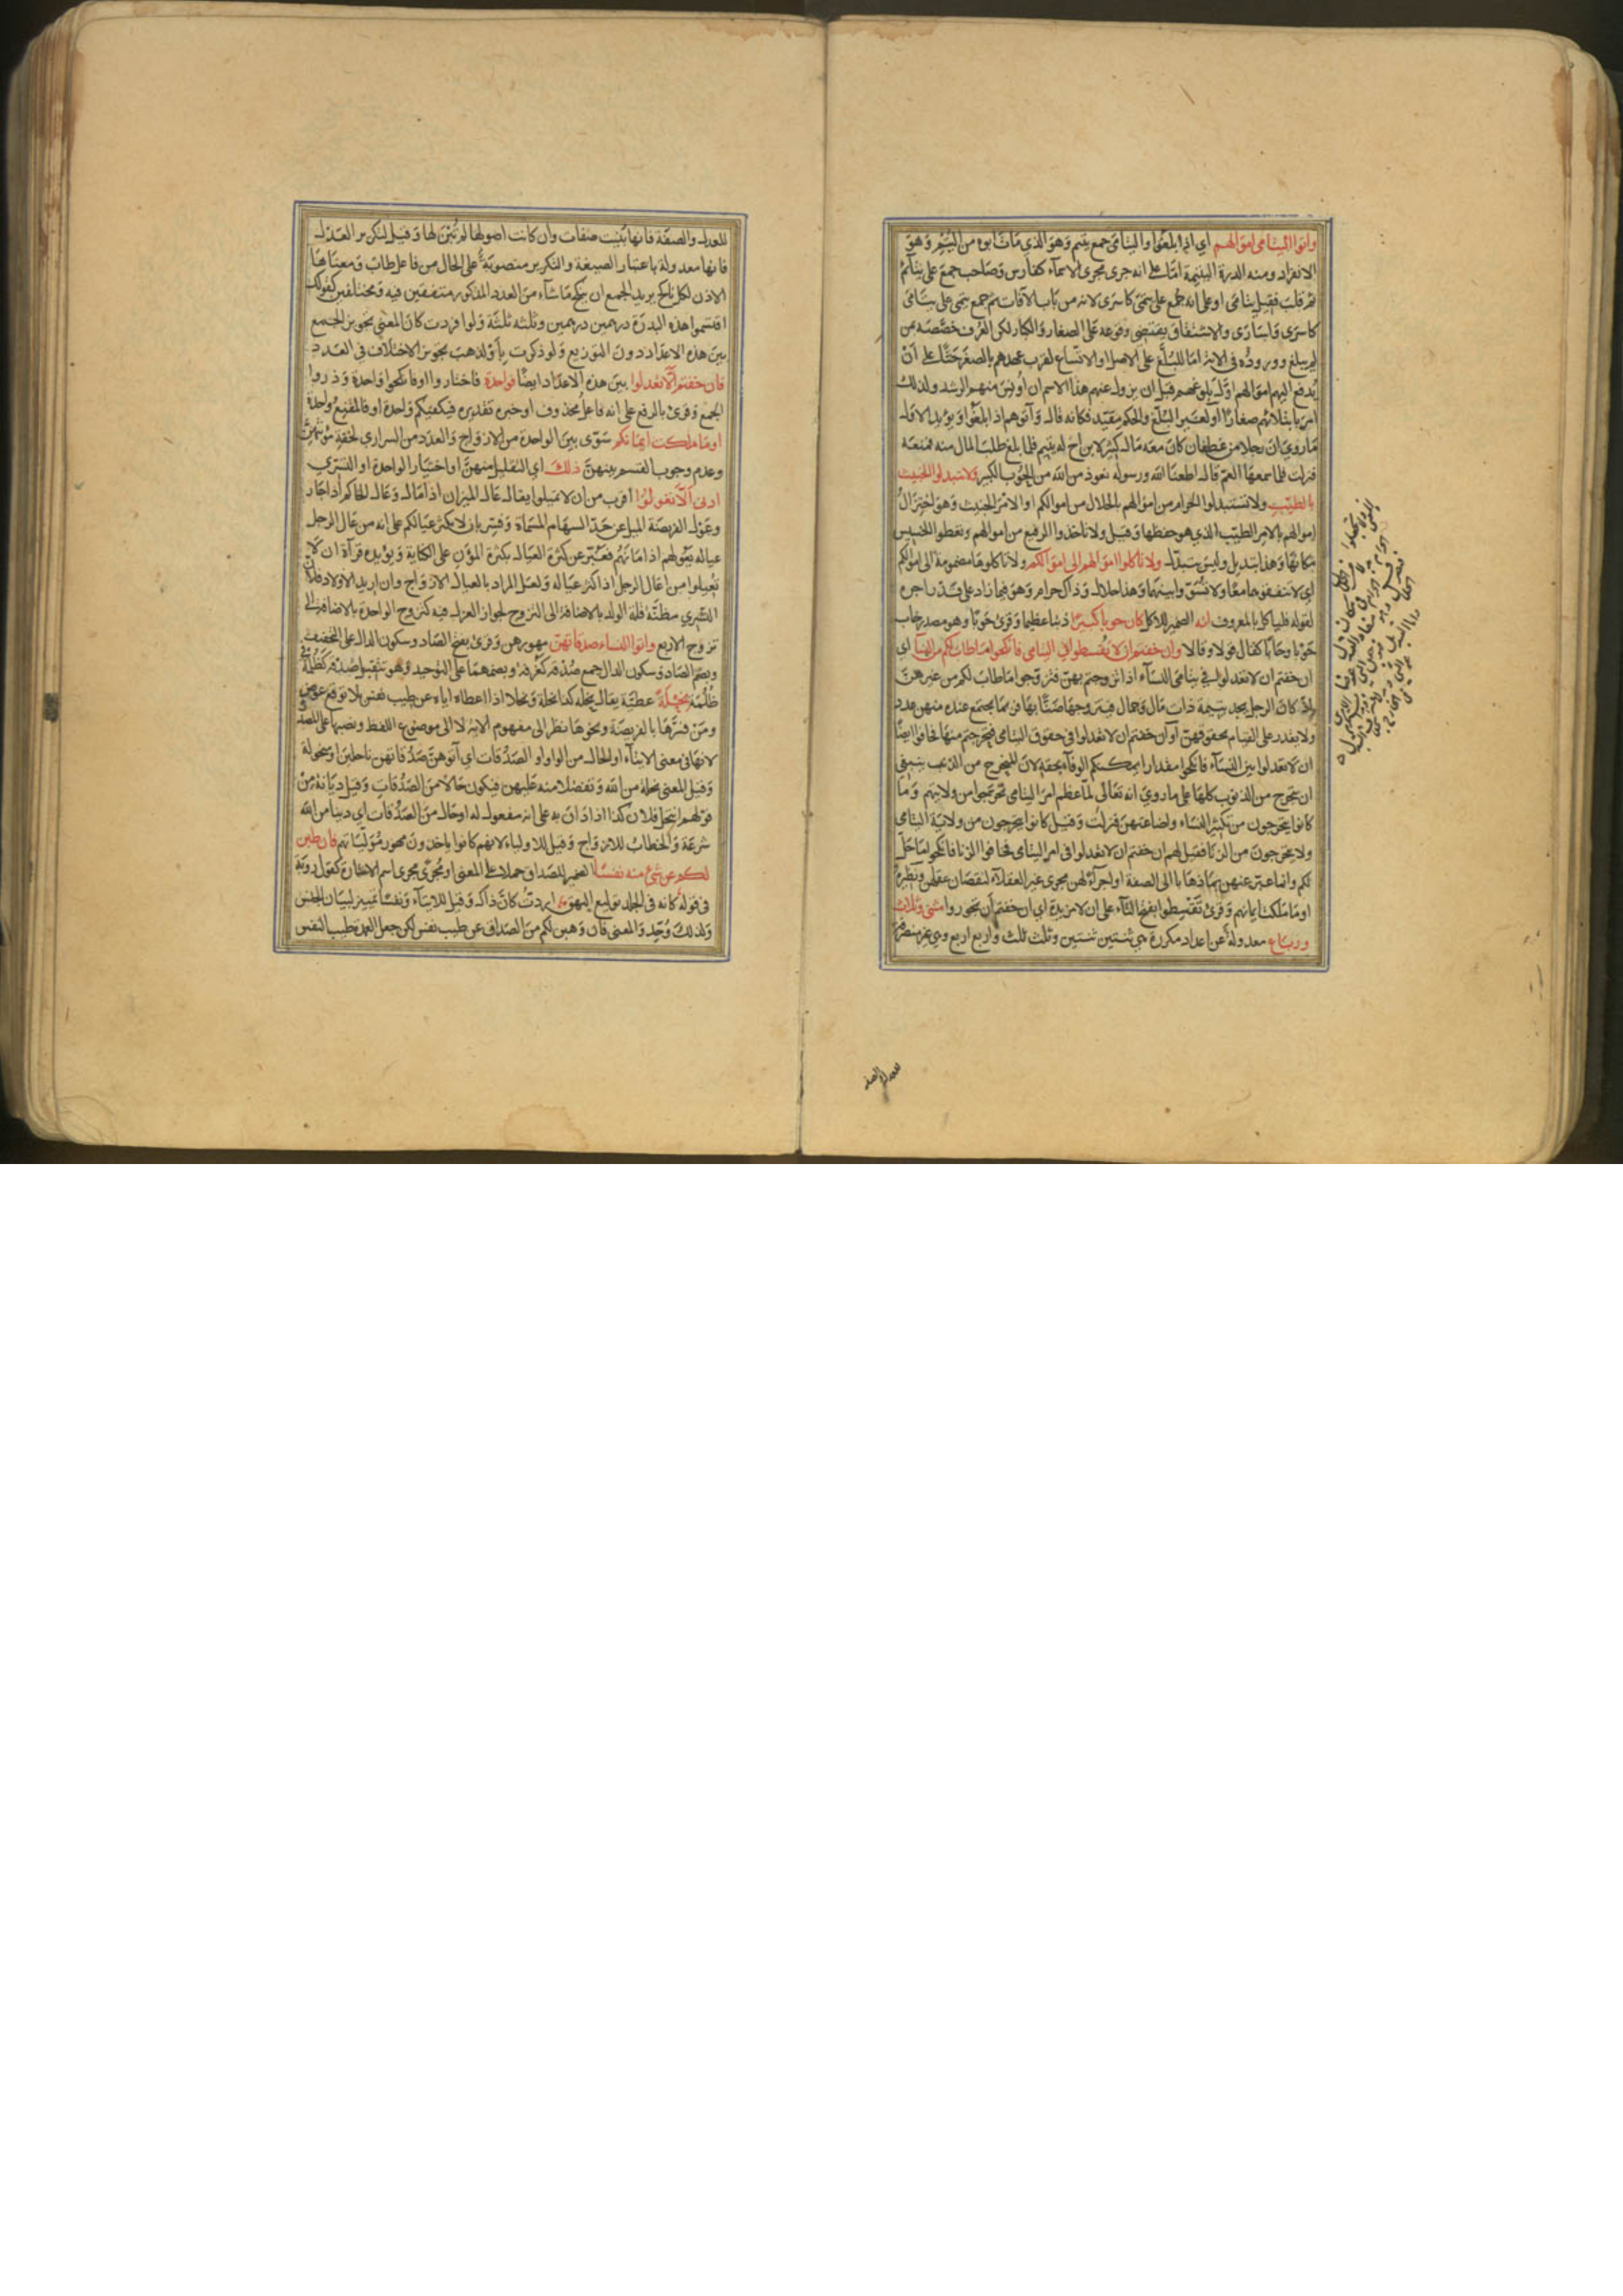 وآتوا اليتامى اموالهم اي اذا بلغوا واليتامى جمع يتيم وهو الذي مات ابوه من اليُتم وهو
الانفراد ومنه الدرة اليتيمة امّا على انه جرى مجرى الاسماء كفارس وصاحب جمع على يتائم
ثم قلب فقيل يتامى او على انه جمع على يتمى كاسرى لانه من باب الآفات ثم جمع يتمى على يتامى
كاسرى واسارى والاشتقاق يقتضي وقوعه على الصغار والكبار لكن العرف خصصه بمن
لم يبلغ ووروده في الآية اما للبلّغ على الاصل او الاتساع لقرب عهدهم بالصغر حثّا على ان
يدفع اليهم اموالهم اوّل بلوغهم قبل ان يزول عنهم هذا الاسم ان اونس منهم الرشد ولذلك
امر بابتلائهم صغارا او لغير البلّغ والحكم مقيّد فكانه قال وآتوهم اذا بلغوا ويؤيد الاول
ما روي ان رجلا من غطفان كان معه مال كثير لابن اخ له يتيم فلما بلغ طلب المال منه فمنعه
فنزلت فلما سمعها العمّ قال اطعنا الله ورسوله نعوذ من الله من الحوب الكبير ولا تتبدلوا الخبيث
بالطيّب ولا تستبدلوا الحرام من اموالهم بالحلال من اموالكم او الامر الخبيث وهو اختزال
اموالهم بالامر الطيّب الذي هو حفظها وقيل ولا تاخذوا الرفيع من اموالهم وتعطوا الخسيس
مكانها وهذا تبديل وليس بتبدّل ولا تاكلوا اموالهم الى اموالكم ولا تاكلوها مضمومة الى اموالكم
اي لا تنفقوهما معًا ولا تسوّوا بينهما وهذا حلال وذاك حرام وهو فيما زاد على قدر اجره
لقوله فليأكل بالمعروف انه الضمير للاكل كان حوبا كبيرًا ذنبا عظيما وقرئ حَوبًا وهو مصدر حاب
حوبا وحابًا كقال قولا وقالا وان خفتم ان لا تُقسطوا في اليتامى فانكحوا ما طاب لكم من النساء اي
ان خفتم ان لا تعدلوا في يتامى النساء اذا تزوجتم بهن فتزوّجوا ما طاب لكم من غيرهنّ
اذ كان الرجل يجد يتيمة ذات مال وجمال فيتزوجها ضنًّا بها فربما يجتمع عنده منهن عدد
ولا يقدر على القيام بحقوقهنّ او ان خفتم ان لا تعدلوا في حقوق اليتامى فتحرجتم منها فخافوا ايضًا
ان لا تعدلوا بين النساء فانكحوا مقدارا يمكنكم الوفاء بحقه لانّ المتحرج من الذنب ينبغي
ان يتحرج من الذنوب كلها على ما روي انه تعالى لمّا عظم امر اليتامى تحرّجوا من ولايتهم وما
كانوا يتحرجون من تكثير النساء واضاعتهن فنزلت وقيل كانوا يتحرجون من ولاية اليتامى
ولا يتحرجون من الزنا فقيل لهم ان خفتم ان لا تعدلوا في امر اليتامى فخافوا الزنا فانكحوا ما حلّ
لكم وانما عبّر عنهن بما ذهابا الى الصفة او اجراءً لهن مجرى غير العقلاء لنقصان عقلهن ونظيره
او ما ملكت ايمانهم وقرئ تَقسِطوا بفتح التاء على ان لا مزيدة اي ان خفتم ان تجوروا مثنى وثلاث
ورباع معدولة عن اعداد مكررة هي ثنتين ثنتين وثلث ثلث واربع اربع وهي غير منصرفة
للعدل والصفة فانها بُنيت صفات وان كانت اصولها لم تُبنَ لها وقيل لتكرير العدل
فانها معدولة باعتبار الصيغة والتكرير منصوبة على الحال من فاعل طاب ومعناها
الاذن لكل ناكح يريد الجمع ان ينكح ما شاء من العدد المذكور متفقين فيه ومختلفين كقولك
اقتسموا هذه البدرة درهمين درهمين وثلثه ثلثة ولو افردت كان المعنى تجويز الجمع
بين هذه الاعداد دون التوزيع ولو ذكرت بأو لذهب تجويز الاختلاف في العدد
فان خفتم ألّا تعدلوا بين هذه الاعداد ايضًا فواحدة فاختاروا او فانكحوا واحدة وذروا
الجمع وقرئ بالرفع على انه فاعل محذوف او خبره تقديره فيكفيكم واحدة او فالمقنع واحدة
او ما ملكت ايمانكم سوّى بين الواحدة من الازواج والعدد من السراري لخفة مؤنهن
وعدم وجوب القسم بينهنّ ذلك اي التقليل منهنّ او اختيار الواحدة او التسرّي
ادنى ألّا تعولوا اقرب من ان لا تميلوا يقال عال الميزان اذا مال وعال الحاكم اذا جار
وعول الفريضة الميل عن حدّ السهام المسماة وفسّر بان لا يكثر عيالكم على انه من عال الرجل
عياله يعولهم اذا مانهم فعبّر عن كثرة العيال بكثرة المؤن على الكناية ويؤيده قراءة ان لا
تُعيلوا من اعال الرجل اذا كثر عياله ولعل المراد بالعيال الازواج وان اريد الاولاد فلانّ
التسرّي مظنّة قلة الولد بالاضافة الى التزوج لجواز العزل فيه كتزوج الواحدة بالاضافة الى
تزوج الاربع وآتوا النساء صدقاتهنّ مهورهن وقرئ بفتح الصاد وسكون الدال على التخفيف
وبضم الصاد وسكون الدال جمع صُدْقة كغُرفة وبضمهما على التوحيد وهو تثقيل صُدْقة كظُلُمة في
ظُلْمة نحلةً عطيّة يقال نحله كذا نحلة ونُحلا اذا اعطاه اياه عن طيب نفس بلا توقع عوض
ومن فسّرها بالفريضة ونحوها نظر الى مفهوم الآية لا الى موضوع اللفظ ونصبها على المصدر
لانها في معنى الايتاء او الحال من الواو او الصدقات اي آتوهنّ صدقاتهن ناحلين او منحولة
وقيل المعنى نحلة من الله وتفضلا منه عليهن فيكون حالا من الصدقات وقيل ديانة من
قولهم انتحل فلان كذا اذا دان به على انه مفعول له او حال من الصدقات اي دينا من الله
شرعة والخطاب للازواج وقيل للاولياء لانهم كانوا ياخذون مهور مُوَلّياتهم فان طبن
لكم عن شئ منه نفسًا الضمير للصداق حملا على المعنى او مُجرى مجرى اسم الاشارة كقول رؤبة
في قوله كانه في الجلد توليع البهق اردتُ كانّ ذاك وقيل للايتاء ونفسًا تمييز لبيان الجنس
ولذلك وُحّد والمعنى فان وهبن لكم من الصداق عن طيب نفس لكن جعل العمدة طيب النفس